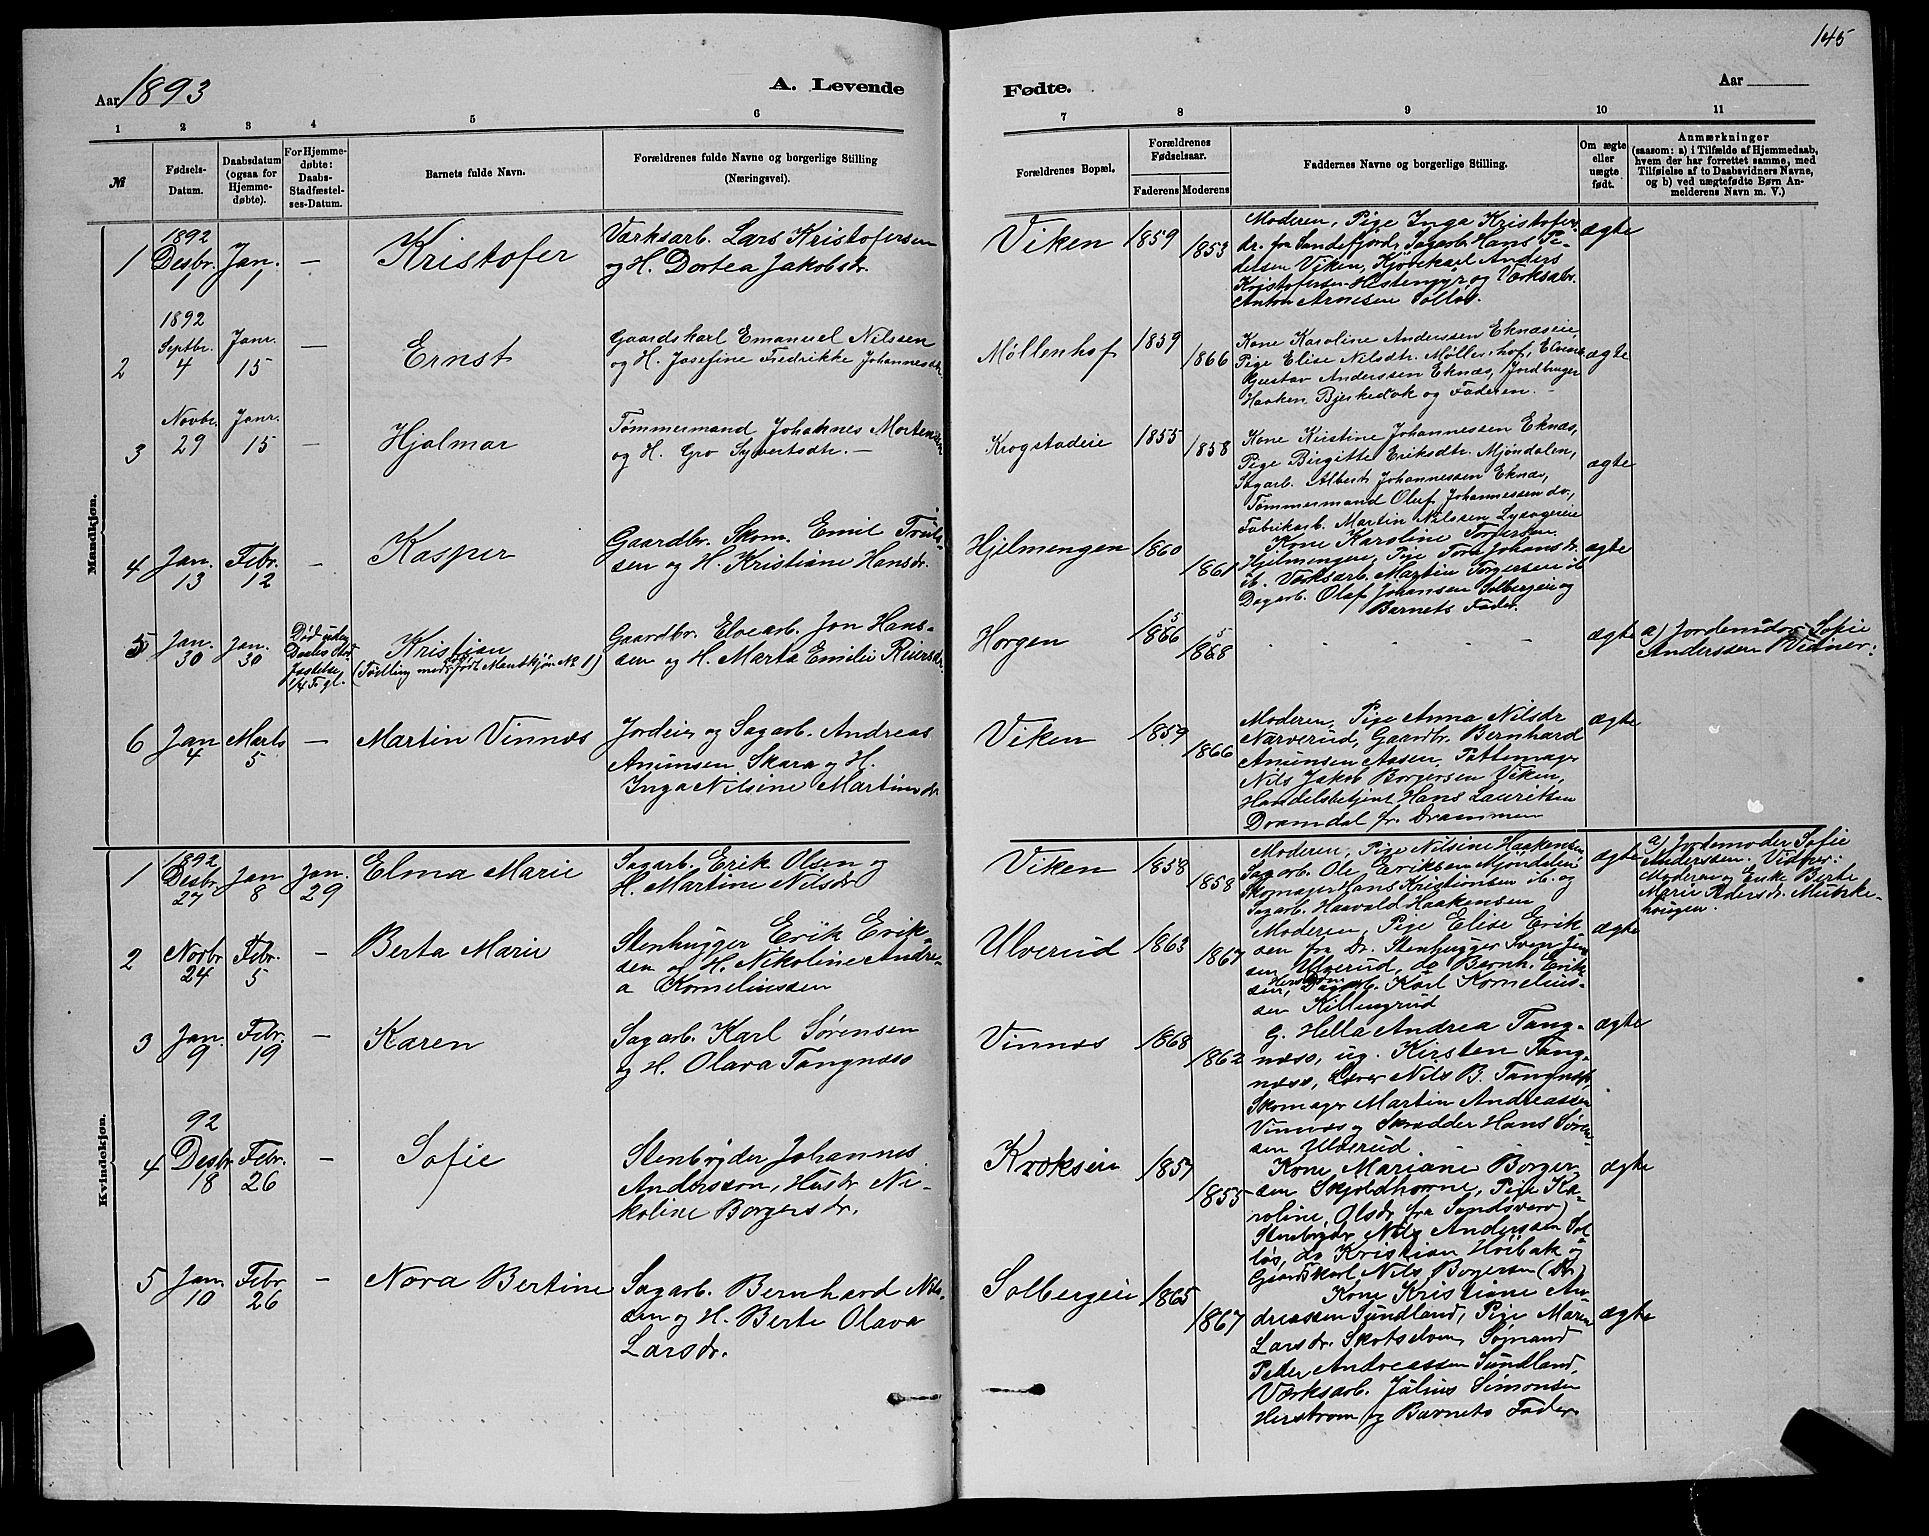 145
Aar 1893
A. Levende
Fødte.
Aar
1 2 3 4 5 6 7 8 9 10 11
№
Fødsels-Datum.
Daabsdatum (ogsaa for Hjemme-døbte).
For Hjemme-døbte: Daabs-Stadfæstel-ses-Datum.
Barnets fulde Navn.
Forældrenes fulde Navne og borgerlige Stilling (Næringsvei).
Forældrenes Bopæl.
Forældrenes Fødselsaar.
Faderens Moderens
Faddernes Navne og borgerlige Stilling.
Om ægte eller uægte født.
Anmærkninger
(saasom: a) i Tilfælde af Hjemmedaab, hvem der har forrettet samme, med Tilføielse af to Daabsvidners Navne, og b) ved uægtefødte Børn An-melderens Navn m. V.)
Mandkjøn.
1 1892 Desbr. 1 Jan. 1 — Kristofer
Værksarb. Lars Kristofersen
og H. Dortea Jakobsdr.
Viken 1859 1853
Moderen, Pige Inga Kristofers-
dr. fra Sandefjord, Sagarb. Hans Pe-
dersen Viken, Kjørekarl Anders
Kristofersen Hestengr og Værksabr.
Anton Arnesen Solløs.
ægte
2 1892 Septbr. 4 Janr. 15 — Ernst
Gaardskarl Emanuel Nilssen
og H. Josefine Fredrikke Johannesdtr.
Møllenhof 1859 1866
Kone Karoline Anderssen Eknæseie,
Pige Elise Nilsdtr. Møllenhof,
Gustav Anderssen Eknæs, Jordbruger
Haaken Bjerkedok og Faderen.
ægte
3 Novbr. 29 Janr. 15 — Hjalmar
Tømmermand Johannes Mortensen
og H. Gro Syvertsdtr. —
Krogstadeie 1855 1858
Kone Kirstine Johannessen Eknæs,
Pige Birgitte Eriksdtr. Mjøndalen,
Sagarb. Albert Johannessen Eknæs,
Tømmermand Oluf Johannessen do,
Fabrikarb. Martin Nilssen
ægte
4 Jan. 13 Febr. 12 — Kasper
Gaardbr. Skom. Emil Truls-
sen og H. Kristiane Hansdr.
Hjelmengen 1860 1861
Kone Karoline Torgersen
Hjelmengen, Pige Tora Johansdr.
ib. Værksarb. Martin Torgersen ib
Dagarb. Olaf Johansen Solbergeie og
Barnets Fader.
ægte
5 Jan. 30 Jan. 30
Død uden
Daabs Stad-
fæstelse
1/4 Fgl.
Kristian
(Tvilling med Dødfødt Mandkjøn № 1)
Gaardbr. Elvearb. Jon Hans-
sen og H. Marta Emilie Reiersdr.
Horgen 1866 5 1868 5
- - - -
ægte
a) Jordemoder Sofie
Anderssen Vidner:
6 Jan 4 Marts 5 — Martin Vinnæs
Jordeier og Sagarb. Andreas
Amunsen Skara og H.
Inga Nilsine Martinsdr
Viken 1859 1866
Moderen, Pige Anna Nilsdr
Narverud, Gaardbr. Bernhard
Amunsen Aasen, Pottemager
Nils Jakob Borgersen Viken,
Handelsbetjent Hans Lauritsen
Dramdal fr. Drammen
ægte
Kvindekjøn.
1 1892 Desbr. 27 Jan 8 Jan. 29 Elma Marie
Sagarb. Erik Olsen og
H. Martine Nilsdr
Viken 1858 1858
Moderen, Pige Nilsine Haakensen
Sagarb. Ole Eriksen Mjøndalen
Skomager Hans Kristiansen ib. og
Sagarb. Haavald Haakensen
ægte
a) Jordemoder Sofie
Anderssen. Vidner:
Moderen og Enke Berte
Marie Pedersdr.
2 Novbr 24 Febr. 5 — Berta Marie
Stenhugger Erik Erik-
sen og H. Nikoline Andre-
a Korneliussen
Ulverud 1863 1867
Moderen, Pige Elise Erik
sen fra Dr. Stenhugger Sven Jen-
sen Ulverud, do Bernh. Erik-
sen, Herstrøm Dagarb. Karl Kornelius-
sen Killingrud
ægte
3 Jan. 9 Febr. 19 — Karen
Sagarb. Karl Sørensen
og H. Olava Tangnæss
Vinnæs 1868 1862
G. Hella Andrea Tang-
næss, ug. Kirsten Tang-
næss, Lærer Nils B. Tangnæss,
Skomager Martin Andreassen
Vinnæs og Skrædder Hans Søren-
sen Ulverud.
ægte
4 92 Desbr 18 Febr. 26 — Sofie
Stenbryder Johannes
Andersson, Hustr. Ni-
koline Borgersdr.
Kroksei 1857 1855
Kone Mariane Borger
sen Skjoldhorne, Pige Ka-
roline Olsdr (fra Sandsvær)
Stenbryder Nils Anderssen Sol-
løs, do Kristian Høibak og
Gaardskarl Nils Borgersen (Dr)
ægte
5 Jan. 10 Febr 26 — Nora Bertine
Sagarb. Bernhard Nils-
sen og H. Berte Olava
Larsdr.
Solbergeie 1865 1867
Kone Kristiane An-
dreassen Sundland, Pige Maren
Larsdr. Skotselven, Sømand
Peder Andreassen Sundland,
Værksarb. Julius Simonsen
Herstrøm og Barnets Fader.
ægte